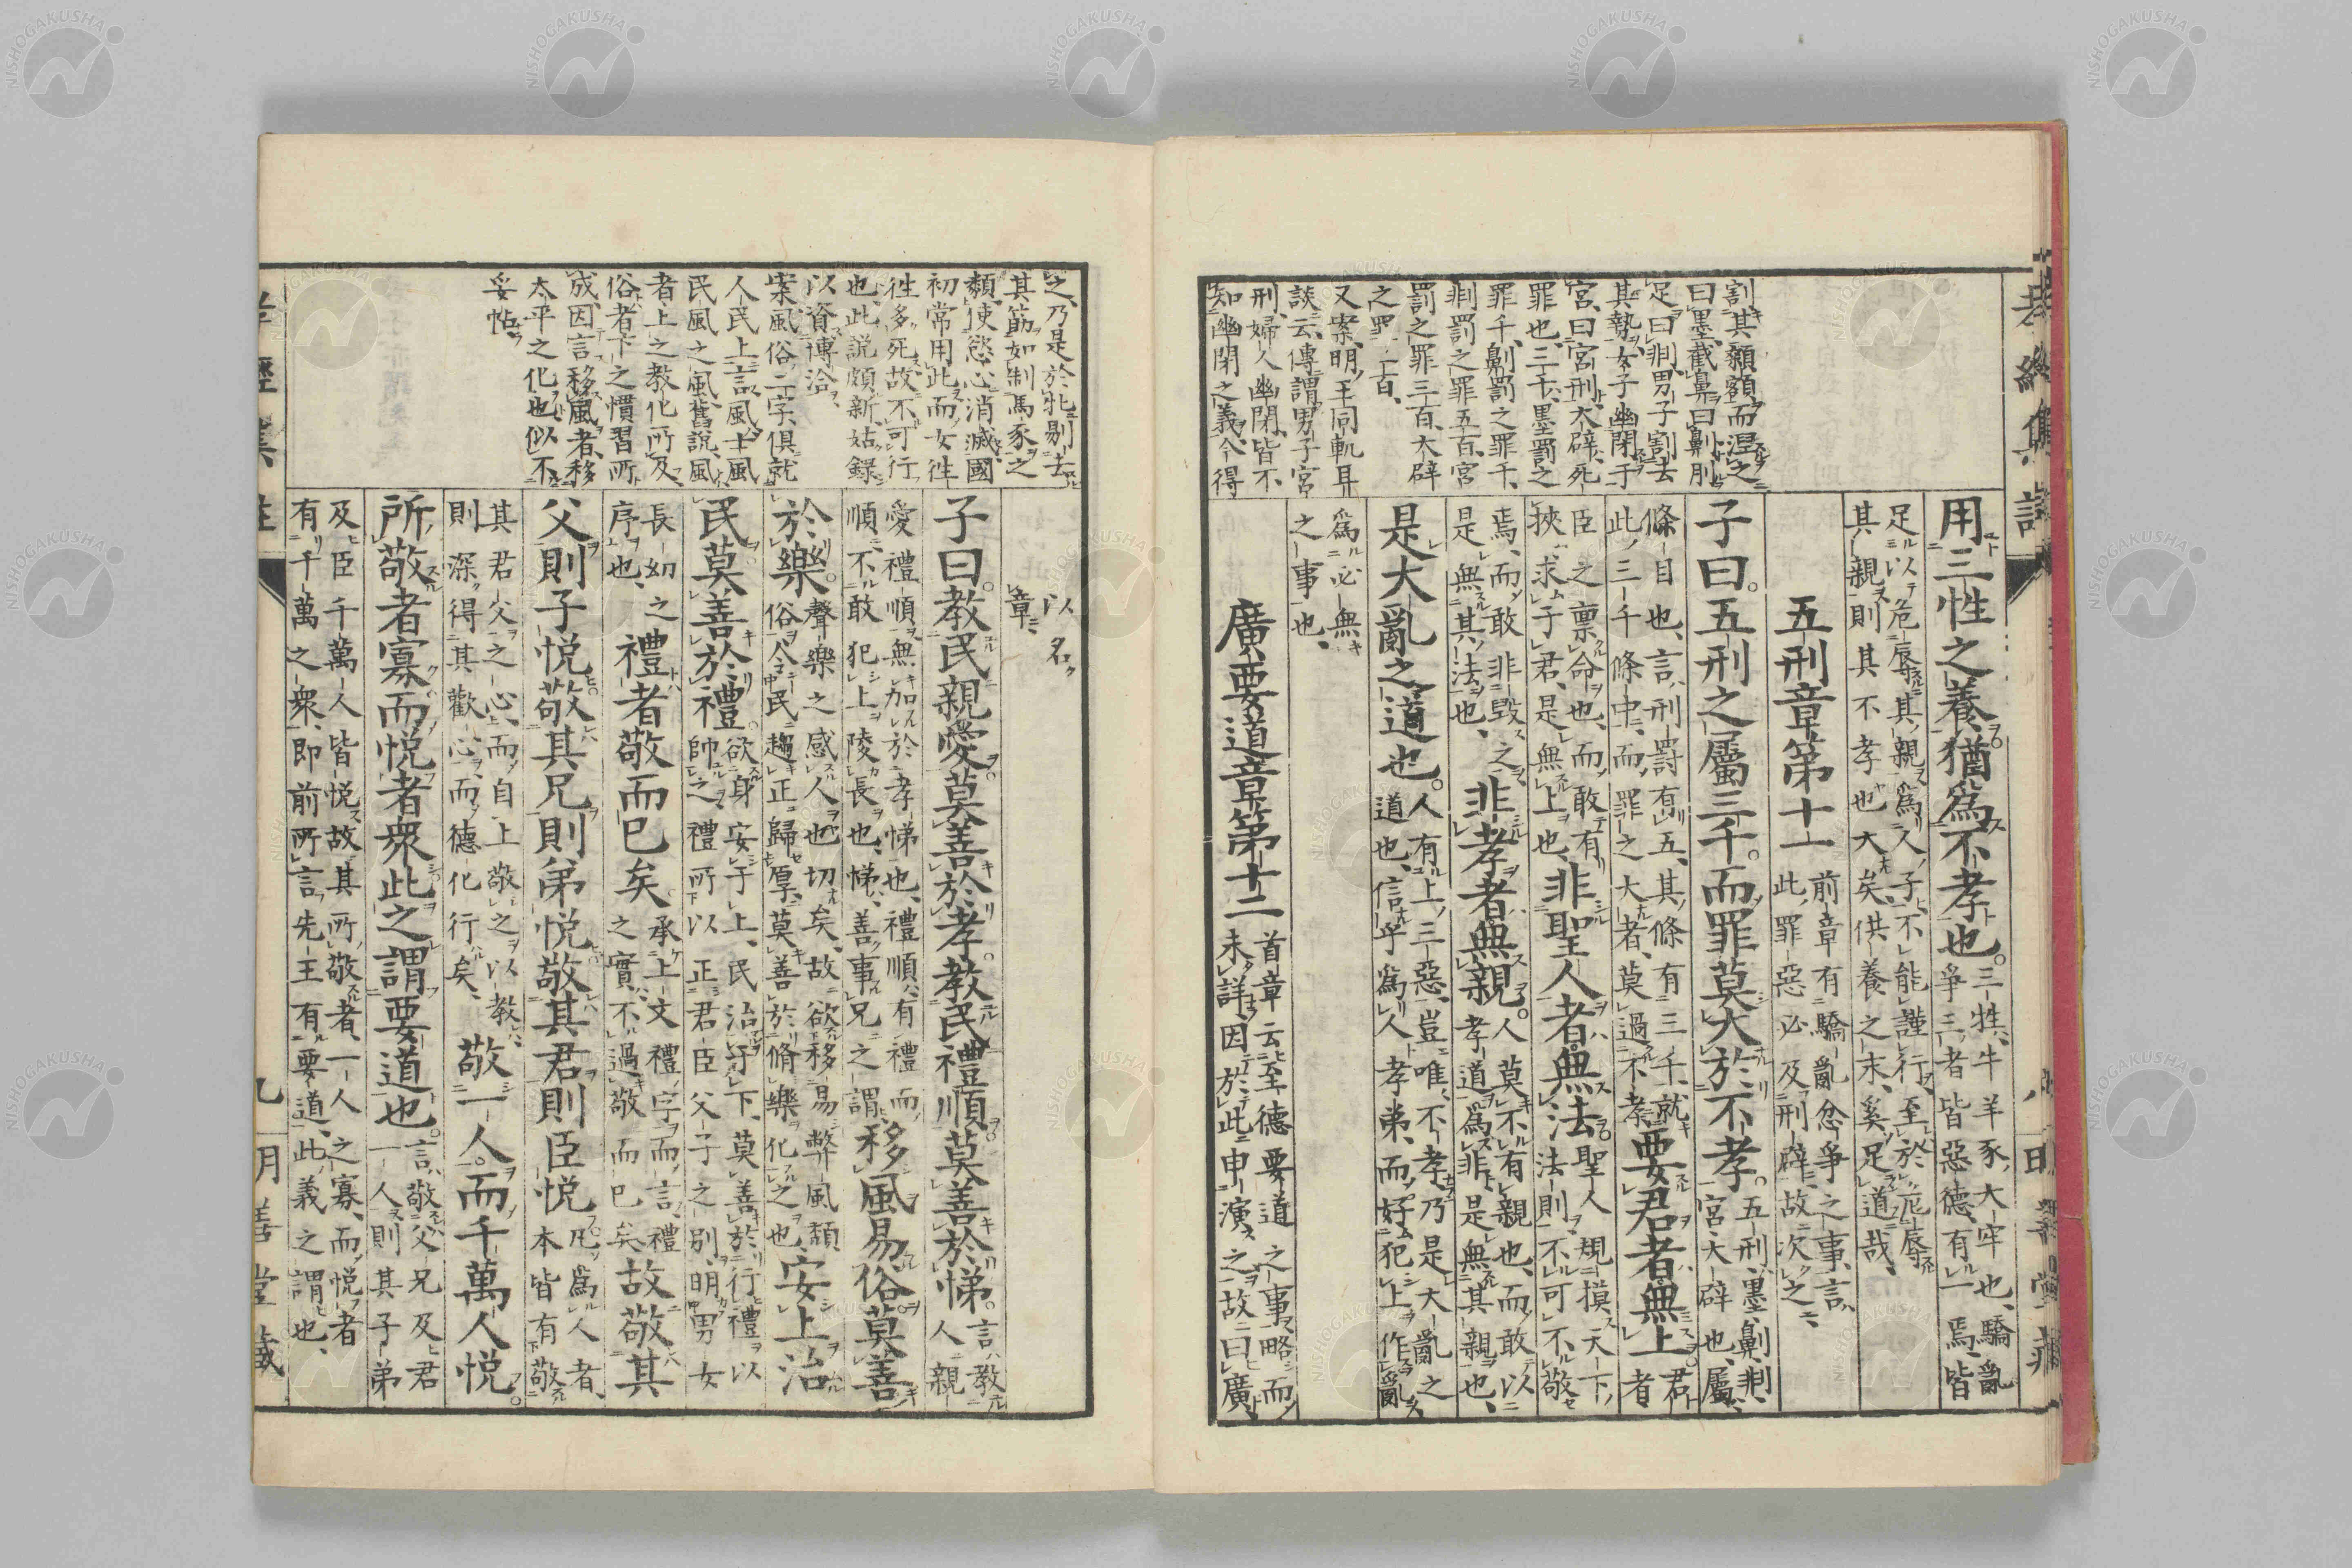 孝經集註
割其額額而涅之
曰墨截鼻曰劓刖
足曰剕男子割去
其勢女子幽閉于
宮曰宮刑大辟死
罪也三千墨罰之
罪千劓罰之罪千
剕罰之罪五百宮
罰之罪三百大辟
之罪二百
又案明王同軌耳
談云傳謂男子宮
刑婦人幽閉皆不
知幽閉之義今得
用三牲之養猶爲不孝也
三牲牛羊豕大牢也驕亂
爭三者皆惡德有一焉皆
足以危辱其親爲人子不能謹行至於厄辱
其親則其不孝也大矣供養之末奚足道哉
五刑章第十一
前章有驕亂忿爭之事言
此罪惡必及刑辟故次之
子曰五刑之屬三千而罪莫大於不孝
五刑墨劓剕
宮大辟也屬
條目也言刑罰有五其條有三千就
此三千條中而罪之大者莫過不孝
要君者無上
君者
臣之稟命也而敢有
挾求于君是無上也
非聖人者無法
聖人規摸天下
法則不可不敬
焉而敢非毀之
是無其法也
非孝者無親
人莫不有親也而敢以
孝道爲非是無其親也
是大亂之道也
人有上三惡豈唯不孝乃是大亂之
道也信乎爲人孝弟而好犯上作亂
爲必無
之事也
廣要道章第十二
首章云至德要道之事略而
未詳因於此申演之故曰廣
之乃是於牝剔去
其筋如制馬豕之
類使慾心消滅國
初常用此而女往
往多死故不可行
也此說頗新姑錄
以資博洽
案風俗二字俱就
人民上言風土風
民風之風舊說風
者上之教化所及
俗者下之慣習所
成因言移風者移
太平之化也似不
妥帖
以名
章
子曰教民親愛莫善於孝教民禮順莫善於悌
言教
人親
愛禮順無加於孝悌也禮順有禮而
順不敢犯上陵長也悌善事兄之謂
移風易俗莫善
於樂
聲樂之感人也切矣故欲移易弊風頽
俗令民趨正歸厚莫善於脩樂化之也
安上治
民莫善於禮
欲身安于上民治于下莫善於行禮以
帥之禮所以正君臣父子之別明男女
長幼之
序也
禮者敬而已矣
承上文禮字而言禮
之實不過敬而已矣
故敬其
父則子悅敬其兄則弟悅敬其君則臣悅
凡爲人者
本皆有敬
其君父之心而自上敬之以教
則深得其歡心而德化行矣
敬一人而千萬人悅
所敬者寡而悅者衆此之謂要道也
言敬父兄及君
一人則其子弟
及臣千萬人皆悅故其所敬者一人之寡而悅者
有千萬之衆即前所言先王有要道此義之謂也
孝經集註
九
明善堂藏